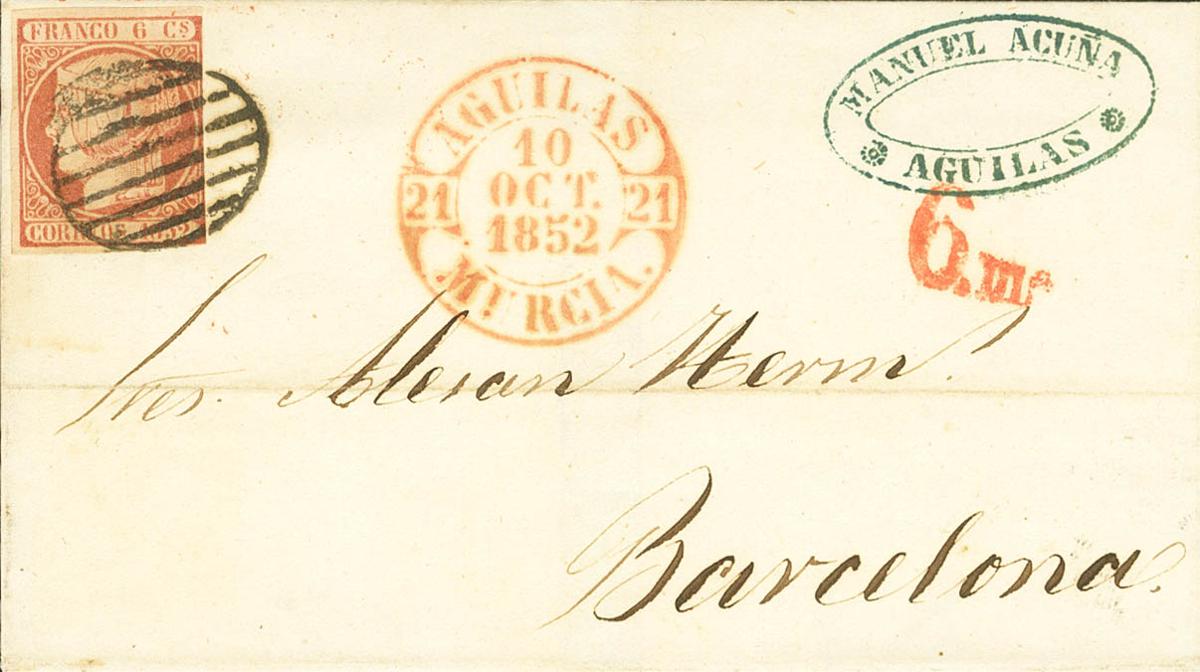 FRANCO 6 Cs
CORREOS 1852
AGUILAS
10
OCT.
1852
21 21
MURCIA.
MANUEL ACUÑA
AGUILAS
6.ms
Sres. Alexan Herm.s
Barcelona.